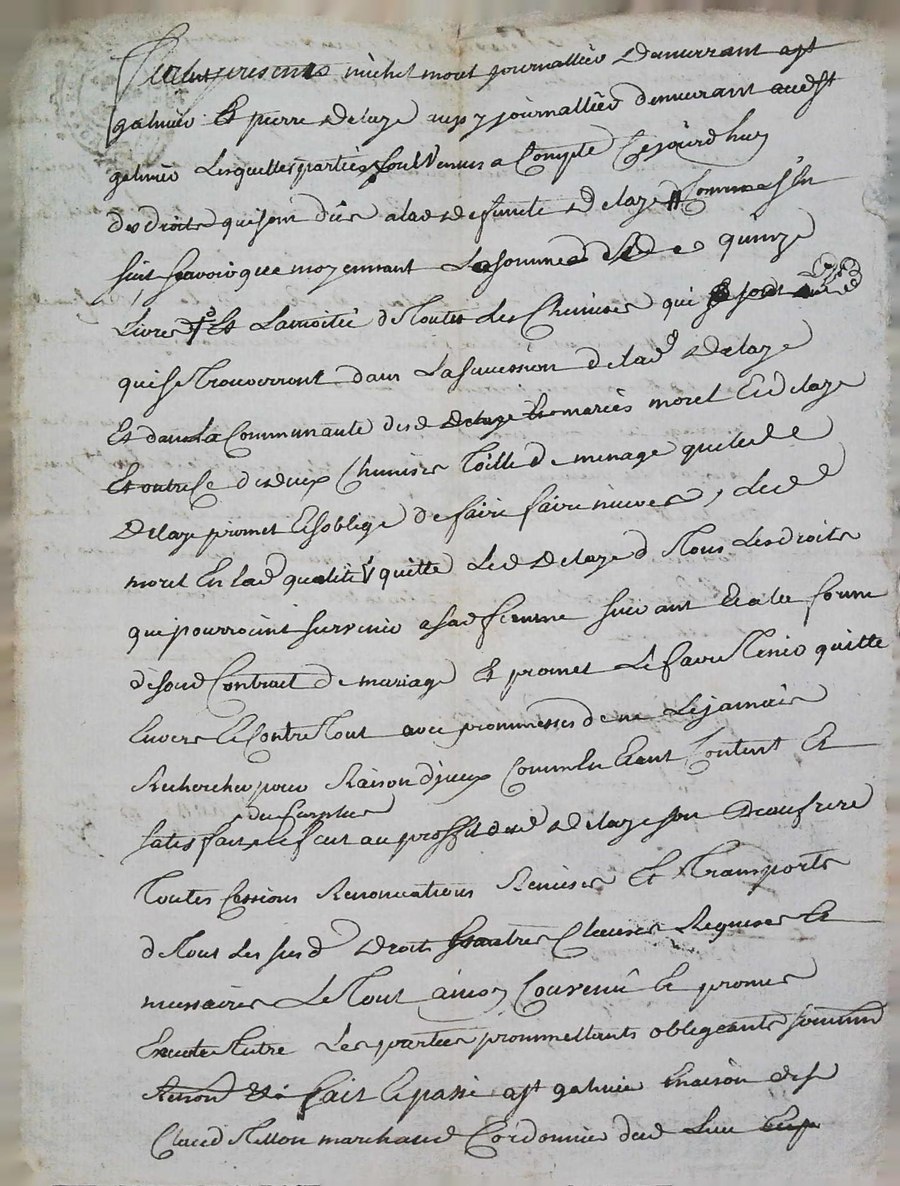 presents michel moret journallier demeurant a St
galmier Et pierre Delaze aussy journallier demeurant aud St
galmier Lesquelles parties sont Venues a Compte Cejourd'huy
des droits qui sont dûs a lad defunte Delaze Comme s'en
suit scavoir que moyennant La somme de quinze
Livres Et La moitié de Toutes Les Chemises qui
qui se Trouverront dans La succession de lad Delaze
Et dans La Communauté desd mariés moret Et Delaze
Et outre Ce de deux Chemises Toille de menage que led
Delaze promet Et s'oblige de faire faire neuves, Led
moret En lad qualité quitte Led Delaze de Tous Les droits
qui pourroient survenir a sad femme suivant Et a la forme
de sond Contrat de mariage Et promet Le faire Tenir quitte
Envers Et Contre Tout avec prommesses de ne Le jamais
Rechercher pour Raison d'jceux Comme En Etant Content Et
du surplus
satisfait au proffit dud Delaze son Beaufrere
Toutes Cessions Renonciations Remises Et Transports
de Tout Les susd Droits Clauses Requises Et
necessaires Le Tout ainsy Convenû Et promis
Les parties prommettants obligeants
fait Et passé a St galmier maison de sr
Claude marchand Cordonnier dud Lieu